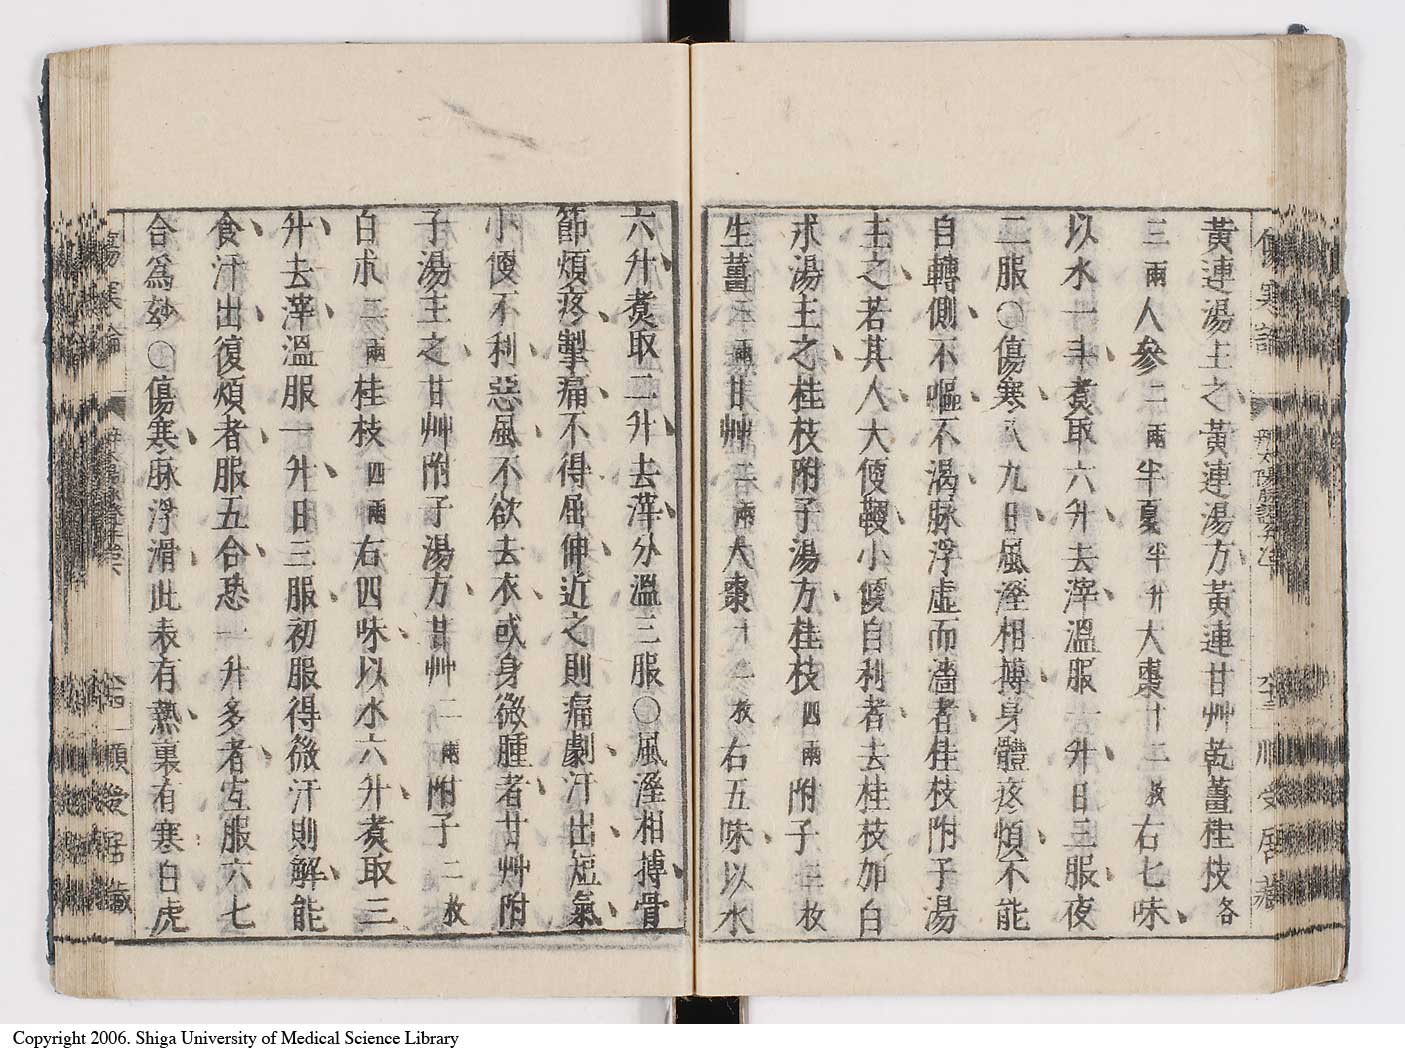 黃連湯主之、黃連湯方、黃連甘艸乾薑桂枝各
三兩人參二兩半夏半升大棗十二枚右七味、
以水一斗、煑取六升、去滓、溫服一升、日三服、夜
二服○傷寒八九日、風溼相搏、身體疼煩、不能
自轉側、不嘔、不渴、脉浮虛而濇者、桂枝附子湯
主之、若其人大便鞕、小便自利者、去桂枝加白
朮湯主之、桂枝附子湯方、桂枝四兩附子三枚
生薑三兩甘艸二兩大棗十二枚右五味、以水
六升、煑取二升、去滓、分溫三服○風溼相搏、骨
節煩疼、掣痛、不得屈伸、近之則痛劇、汗出、短氣、
小便不利、惡風不欲去衣、或身微腫者、甘艸附
子湯主之、甘艸附子湯方、甘艸二兩附子二枚
白朮二兩桂枝四兩右四味、以水六升、煑取三
升、去滓、溫服一升、日三服、初服得微汗則解、能
食、汗出、復煩者、服五合、恐一升多者、宜服六七
合爲妙○傷寒脉浮滑、此表有熱、裏有寒、白虎
傷寒論
順受居藏
Copyright 2006. Shiga University of Medical Science Library